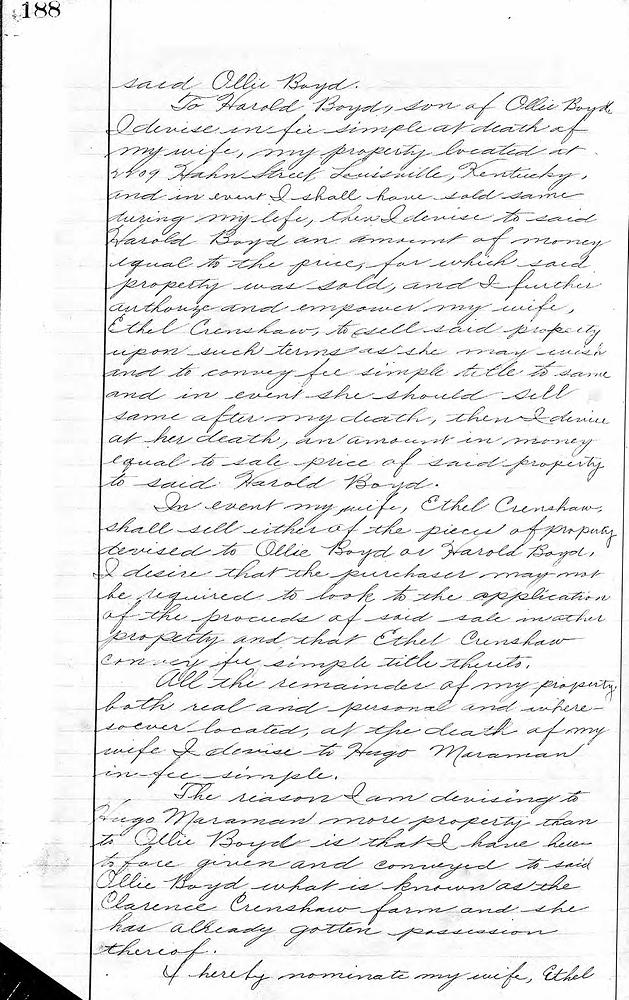 188
said Ollie Boyd.
To Harold Boyd, son of Ollie Boyd,
I devise in fee simple at death of
my wife, my property located at
2409 Hahn Street, Louisville, Kentucky,
and in event I shall have sold same
during my life, then I devise to said
Harold Boyd an amount of money
equal to the price, for which said
property was sold, and I further
authorize and empower my wife,
Ethel Crenshaw, to sell said property
upon such terms as she may wish
and to convey fee simple title to same
and in event she should sell
same after my death, then I devise
at her death, an amount in money
equal to sale price of said property
to said Harold Boyd.
In event my wife, Ethel Crenshaw,
shall sell either of the pieces of property
devised to Ollie Boyd or Harold Boyd,
I desire that the purchaser may not
be required to look to the application
of the proceeds of said sale in other
property and that Ethel Crenshaw
convey fee simple title thereto.
All the remainder of my property,
both real and personal and where-
soever located, at the death of my
wife I devise to Hugo Maraman
in fee simple.
The reason I am devising to
Hugo Maraman more property than
to Ollie Boyd is that I have here-
tofore given and conveyed to said
Ollie Boyd what is known as the
Clarence Crenshaw farm and she
has already gotten possession
thereof.
I hereby nominate my wife, Ethel